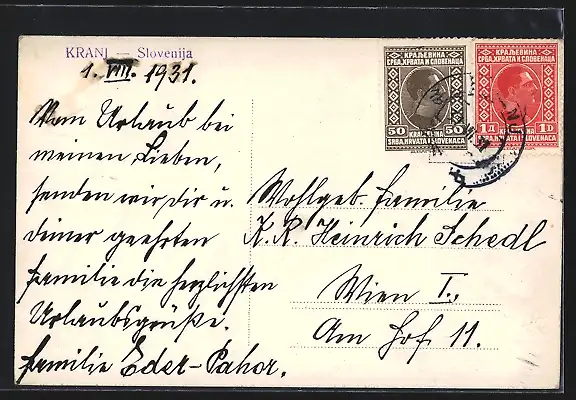 KRANJ — Slovenija
1. VIII. 1931.
Vom Urlaub bei
meinen Lieben,
senden wir dir u.
deiner geehrten
Familie die herzlichsten
Urlaubsgrüße.
Familie Eder-Pahor.
КРАЉЕВИНА
СРБА, ХРВАТА И СЛОВЕНАЦА
50 50
KRALJEVINA
SRBA, HRVATA I SLOVENACA
КРАЉЕВИНА
СРБА, ХРВАТА И СЛОВЕНАЦА
1Д 1D
KRALJEVINA
SRBA, HRVATA I SLOVENACA
Wohlgeb. Familie
K. R. Heinrich Schedl
Wien I.,
Am Hof 11.